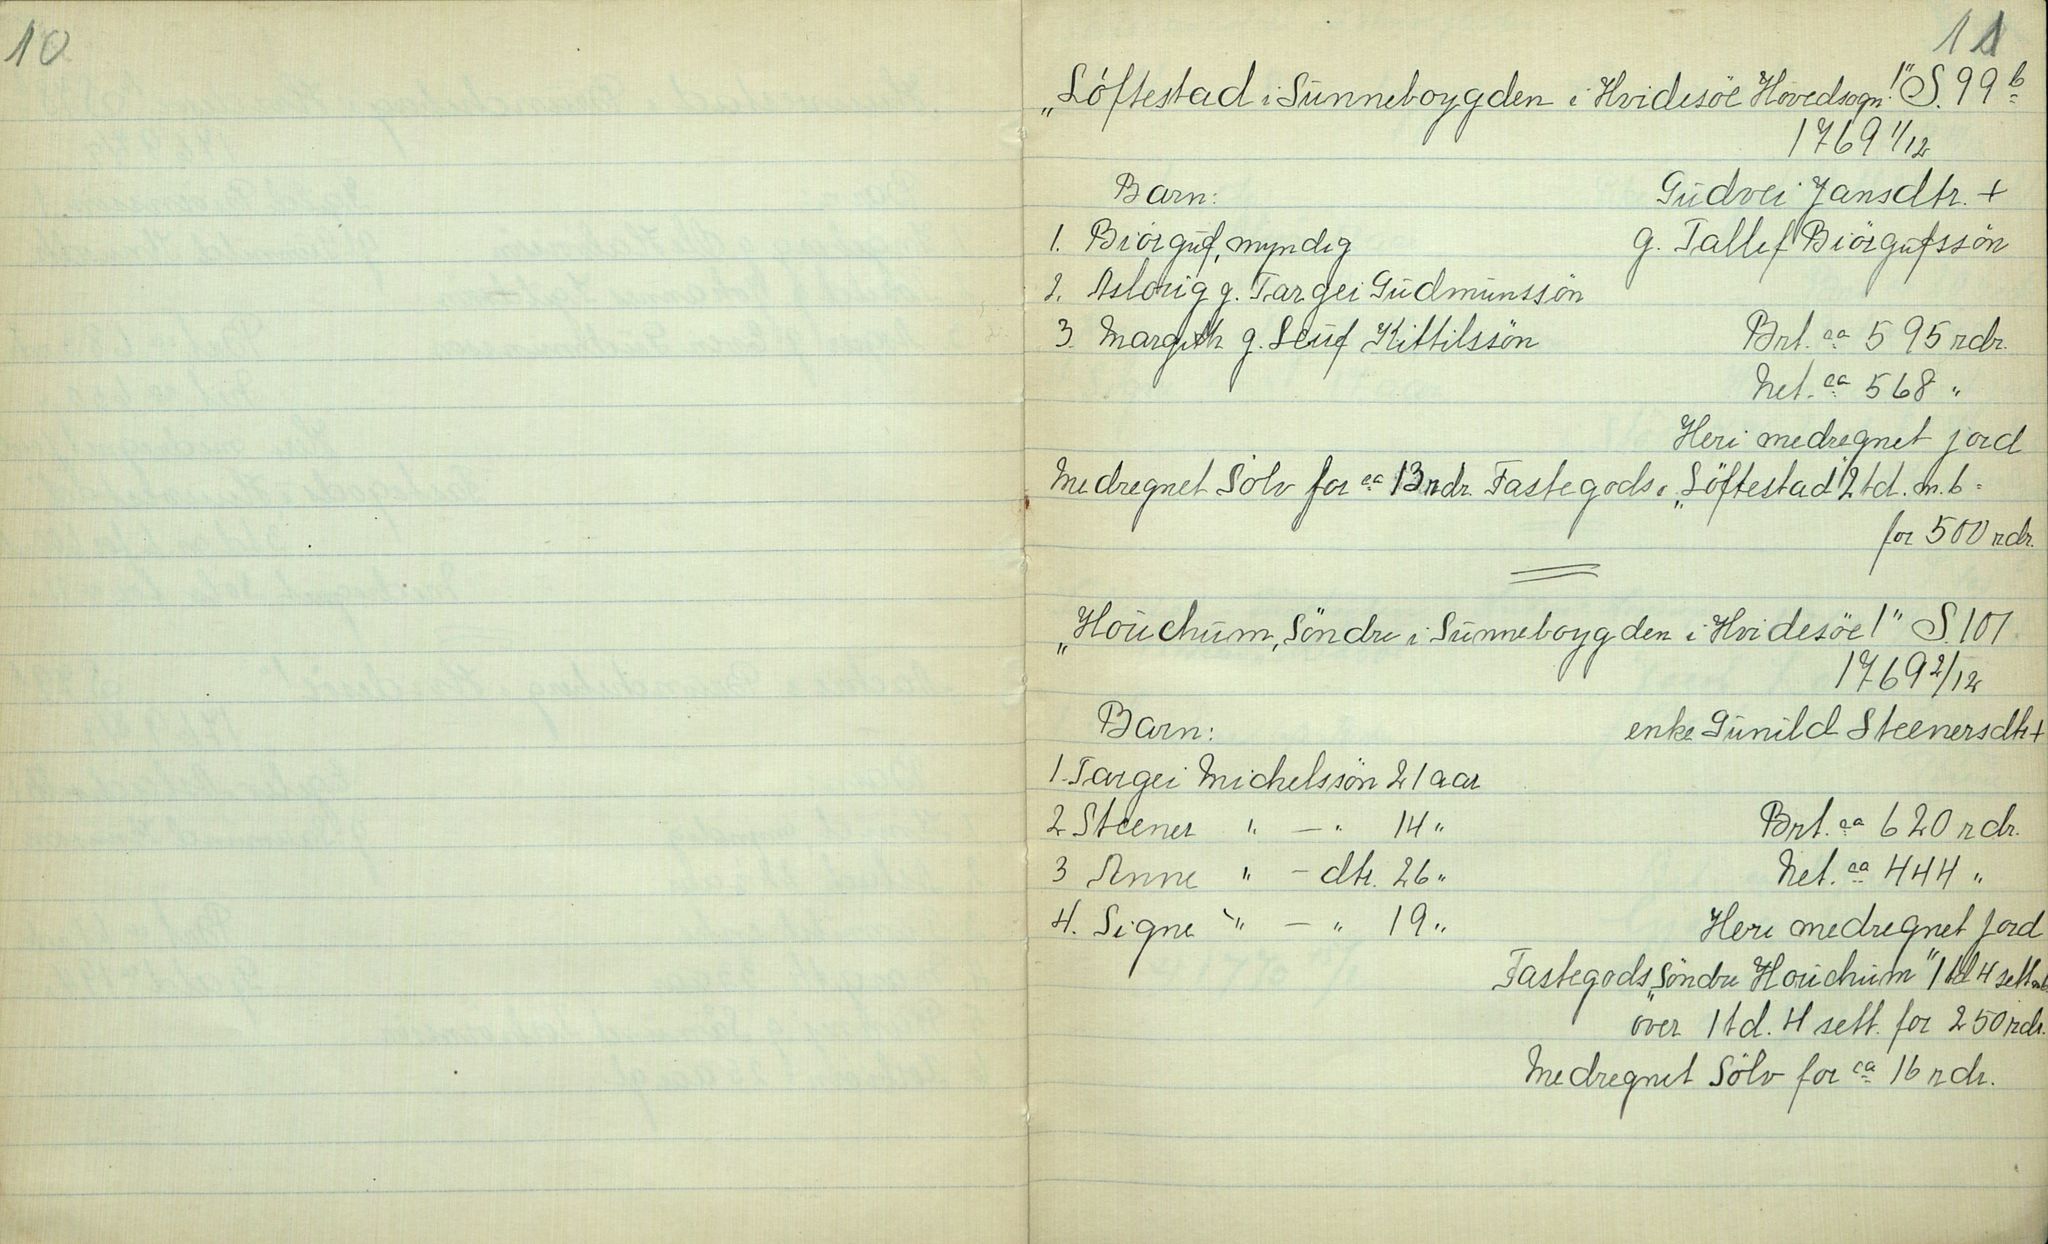 10
11
„Löftestad i Sünneboygden i Hvidesöe Hovedsogn!" S. 99 b
1769 1/12
Barn: Güdvei Jansdtr. +
1. Biörguf, myndig g. Tallef Biörgufssön
2. Aslouig g. Targei Güdmünssön
3. Margith g. Leüf Kittilssön Brt. ca 595 rdr.
Net. ca 568 "
Heri medregnet jord
Medregnet Sölv for ca 13 rdr. Fastegods i „Löftestad" 2 td. m.b.
for 500 rdr.
„Houchüm, Söndre i Sünneboygden i Hvidesöe!" S. 101
1769 2/12
Barn: enke Günild Steenersdtr +
1. Targei Michelssön 21 aar
2 Steener " — " 14 " Brt. ca 620 rdr.
3 Anne " — dtr. 26 " Net. ca 444 "
4. Signe " — " 19 " Heri medregnet jord
Fastegods „Söndre Houchüm" 1 td 4 sett. m.b.
over 1 td. 4 sett. for 250 rdr.
Medregnet Sölv for ca 16 rdr.